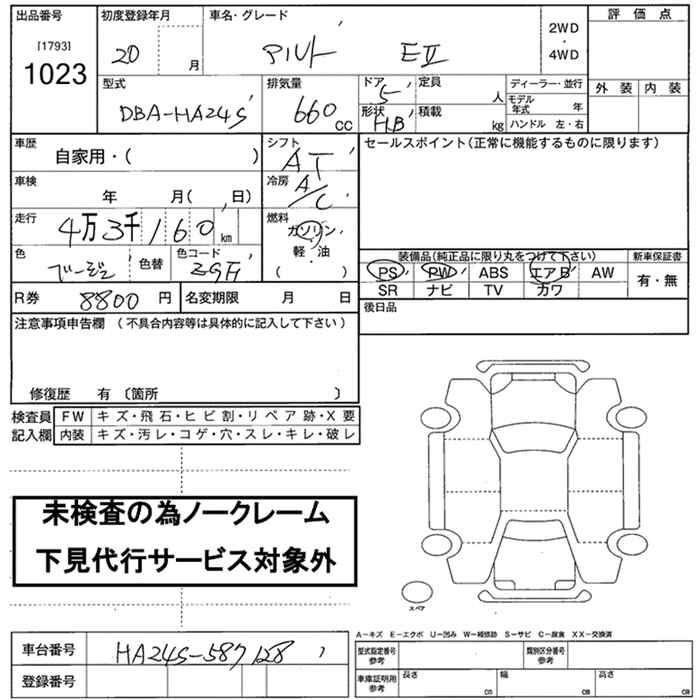 出品番号 初度登録年月 車名・グレード 評価点
[1793] 20 月 アルト EⅡ 2WD・4WD
1023 外装 内装
型式 排気量 ドア 定員 ディーラー・並行
DBA-HA24S 660 CC 5 人 モデル年式 年
形状 HB 積載 kg ハンドル 左・右
車歴 シフト セールスポイント(正常に機能するものに限ります)
自家用・( ) AT
車検 冷房
年 月( 、日) A/C
走行 燃料
4万3千160km ガソリン・軽・油
( )
色 色替 色コード 装備品(純品に限り丸をつけて下さい) 新車保証書
ベージュ PS PW ABS エアB AW 有・無
SR ナビ TV カワ
R券 8800円 名変期限 月 日 後日品
注意事項申告欄 (不具合内容等は具体的に記入して下さい)
修復歴 有〔箇所 〕
検査員 FW キズ・飛石・ヒビ割・リペア跡・X要
記入欄 内装 キズ・汚レ・コゲ・穴・スレ・キレ・破レ
未検査の為ノークレーム
下見代行サービス対象外
スペア
A-キズ E-エクボ U-凹み W-補修跡 S-サビ C-腐食 XX-交換済
車台番号 HA24S-587128 型式指定番号 参考 類別区分番号 参考
登録番号 車庫証明用 参考 長さ cm 幅 cm 高さ cm